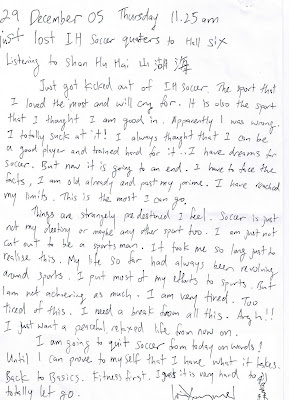 29 December 05 Thursday 11.25am
just lost IH Soccer quaters to Hall six
Listening to Shan Hu Hai 山湖海
Just got kicked out of IH Soccer. The sport that
I loved the most and will cry for. It is also the sport
that I thought I am good in. Apparently I was wrong.
I totally suck at it! I always thought that I can be
a good player and trained hard for it.. I have dreams for
soccer. But now it is going to an end. I have to face the
facts, I am old already and past my prime. I have reached
my limits. This is the most I can go.
Things are strangely predestined I feel. Soccer is just
not my destiny or maybe any other sport too. I am just not
cut out to be a sportsman. It took me so long just to
realise this. My life so far had always been revolving
around sports. I put most of my efforts to sports. But
I am not achieving as much. I am very tired. Too
tired of this. I need a break from all this. Argh!!
I just want a peaceful relaxed life from now on.
I am going to quit soccer from today onwards!
Until I can prove to myself that I have what it takes.
Back to Basics. Fitness first. I guess it is very hard to
totally let go.